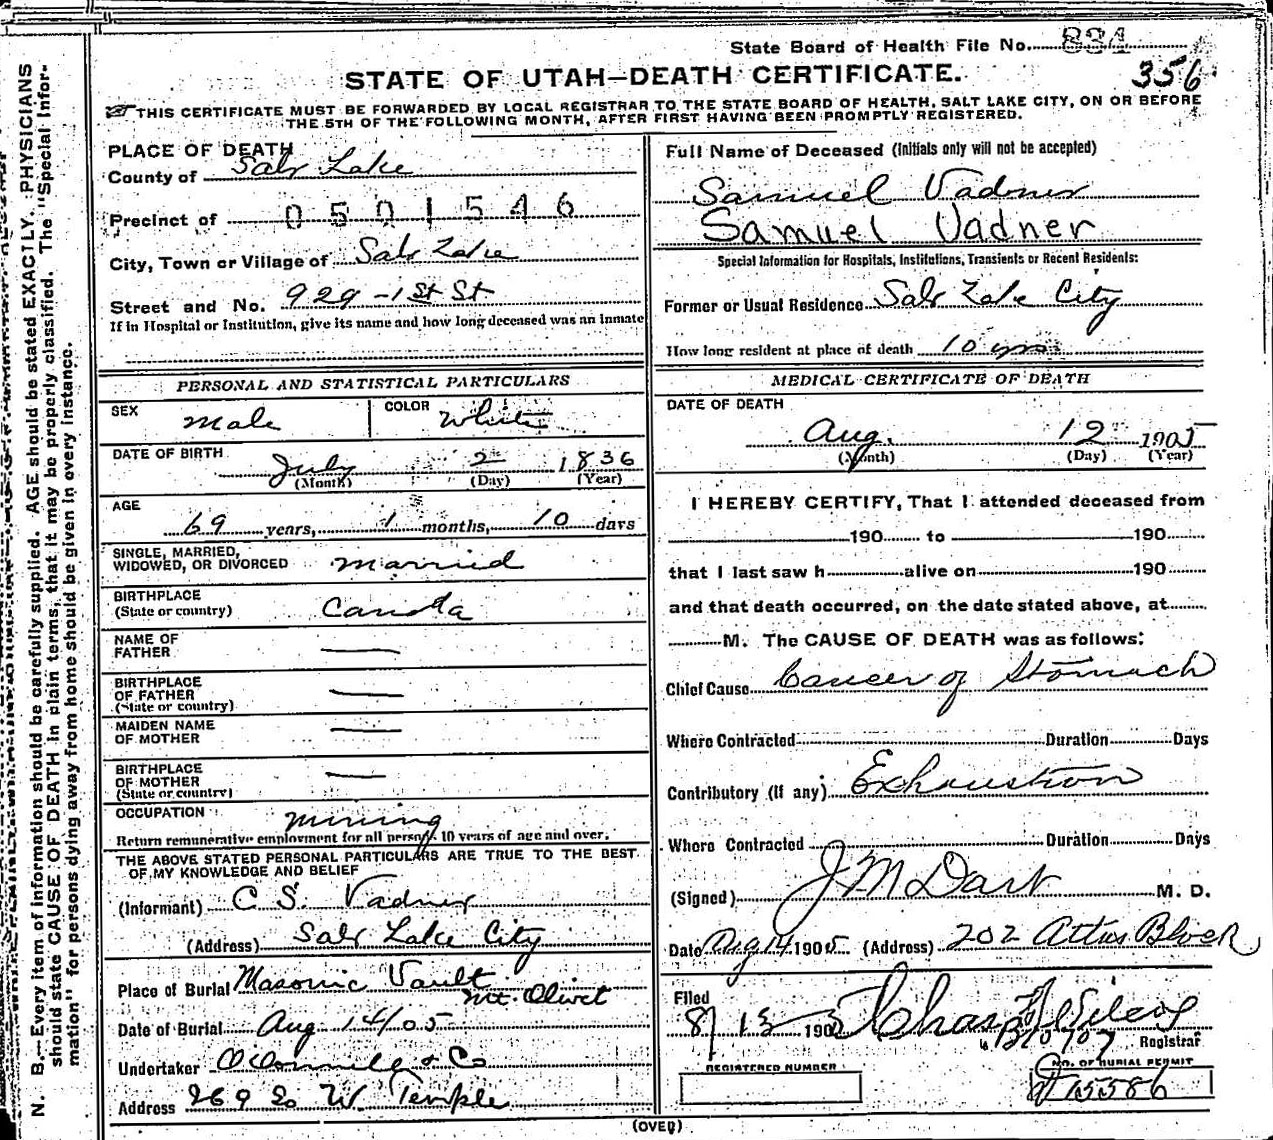 State Board of Health File No. 834
356
STATE OF UTAH—DEATH CERTIFICATE.
THIS CERTIFICATE MUST BE FORWARDED BY LOCAL REGISTRAR TO THE STATE BOARD OF HEALTH, SALT LAKE CITY, ON OR BEFORE
THE 5TH OF THE FOLLOWING MONTH, AFTER FIRST HAVING BEEN PROMPTLY REGISTERED.
PLACE OF DEATH
County of Salt Lake
Precinct of 0501546
City, Town or Village of Salt Lake
Street and No. 929 - 1st St
If in Hospital or Institution, give its name and how long deceased was an inmate
PERSONAL AND STATISTICAL PARTICULARS
SEX Male COLOR White
DATE OF BIRTH July 2 1836
(Month) (Day) (Year)
AGE
69 years, 1 months, 10 days
SINGLE, MARRIED,
WIDOWED, OR DIVORCED Married
BIRTHPLACE
(State or country) Canada
NAME OF
FATHER —
BIRTHPLACE
OF FATHER —
(State or country)
MAIDEN NAME
OF MOTHER —
BIRTHPLACE
OF MOTHER —
(State or country)
OCCUPATION Mining
Return remunerative employment for all persons 10 years of age and over.
THE ABOVE STATED PERSONAL PARTICULARS ARE TRUE TO THE BEST
OF MY KNOWLEDGE AND BELIEF
(Informant) C S. Vadner
(Address) Salt Lake City
Place of Burial Masonic Vault
Mt. Olivet
Date of Burial Aug 14/05
Undertaker O'Donnell & Co
Address 269 So W. Temple
Full Name of Deceased (Initials only will not be accepted)
Samuel Vadner
Samuel Vadner
Special Information for Hospitals, Institutions, Transients or Recent Residents:
Former or Usual Residence Salt Lake City
How long resident at place of death 10 yrs
MEDICAL CERTIFICATE OF DEATH
DATE OF DEATH
Aug. 12 1905
(Month) (Day) (Year)
I HEREBY CERTIFY, That I attended deceased from
190 to 190
that I last saw h alive on 190
and that death occurred, on the date stated above, at
M. The CAUSE OF DEATH was as follows:
Chief Cause Cancer of Stomach
Where Contracted Duration Days
Contributory (if any) Exhaustion
Where Contracted Duration Days
(Signed) J M Dart M. D.
Date Aug 14 1905 (Address) 202 Atlas Block
Filed
8/15 1905 Chas Wilcox
Registrar
B10707
REGISTERED NUMBER
NO. OF BURIAL PERMIT
15586
(OVER)
N. B.—Every item of Information should be carefully supplied. AGE should be stated EXACTLY. PHYSICIANS
should state CAUSE OF DEATH in plain terms, that it may be properly classified. The "Special Infor-
mation" for persons dying away from home should be given in every instance.